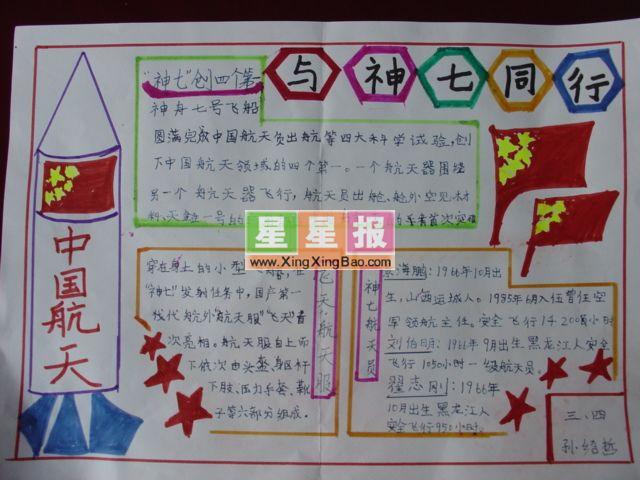 与神七同行
"神七"创四个第一
神舟七号飞船
圆满完成中国航天员出舱等四大科学试验,创
下中国航天领域的四个第一。一个航天器围绕
另一个航天器飞行,航天员出舱、舱外空见材
料、天链一号的
星星报
www.XingXingBao.com
中国航天
飞天·航天服
穿在身上的小型
"神七"发射任务中,国产第一
代舱外航天服"飞天"首
次亮相。航天服自上而
下依次由头盔、身躯杆
下肢、压力手套、靴
子等六部分组成。
神七航天员
海鹏:1966年10月出
生,山西运城人。1985年6月入伍曾任空
军领航主任。安全飞行1200小时
刘伯明:1966年9月出生黑龙江人安全
飞行1050小时一级航天员。
翟志刚:1966年
10月出生黑龙江人
安全飞行950小时。
三、四
孙绍哲